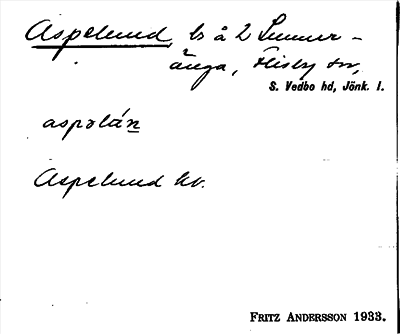 Aspelund, ls å 2 Sunner-
änga, Flisby sn,
S. Vedbo hd, Jönk. l.
aspəlán
Aspelund hv.
FRITZ ANDERSSON 1933.